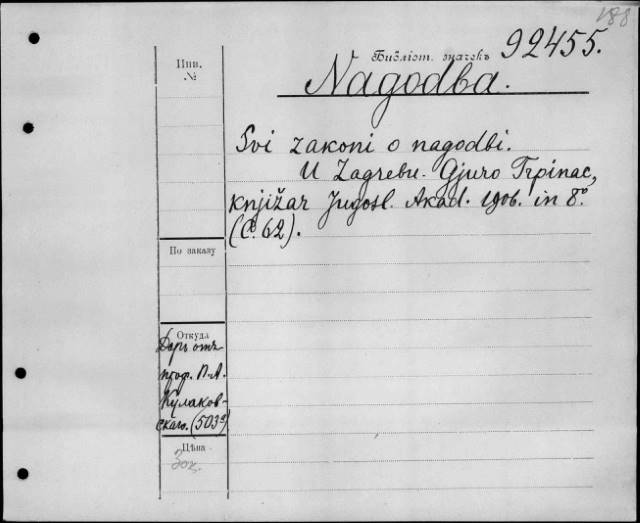 188
Библіот. значекъ 92455.
Инв.
№
Nagodba.
Svi zakoni o nagodbi.
U Zagrebu. Gjuro Trpinac,
knjižar Jugosl. Akad. 1906. in 8°.
(C. 62).
По заказу
Откуда
Даръ отъ
проф. П. А.
Кулаков-
скаго. (5039)
Цѣна
30к.